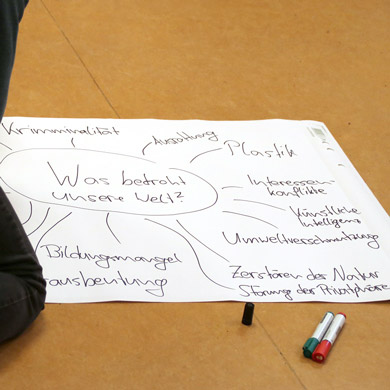 Kriminalität
Plastik
Was bedroht
unsere Welt?
Interessen-
konflikte
Künstliche
Intelligenz
Umweltverschmutzung
Bildungsmangel
ausbeutung
Zerstören der Natur
Störung der Privatphäre